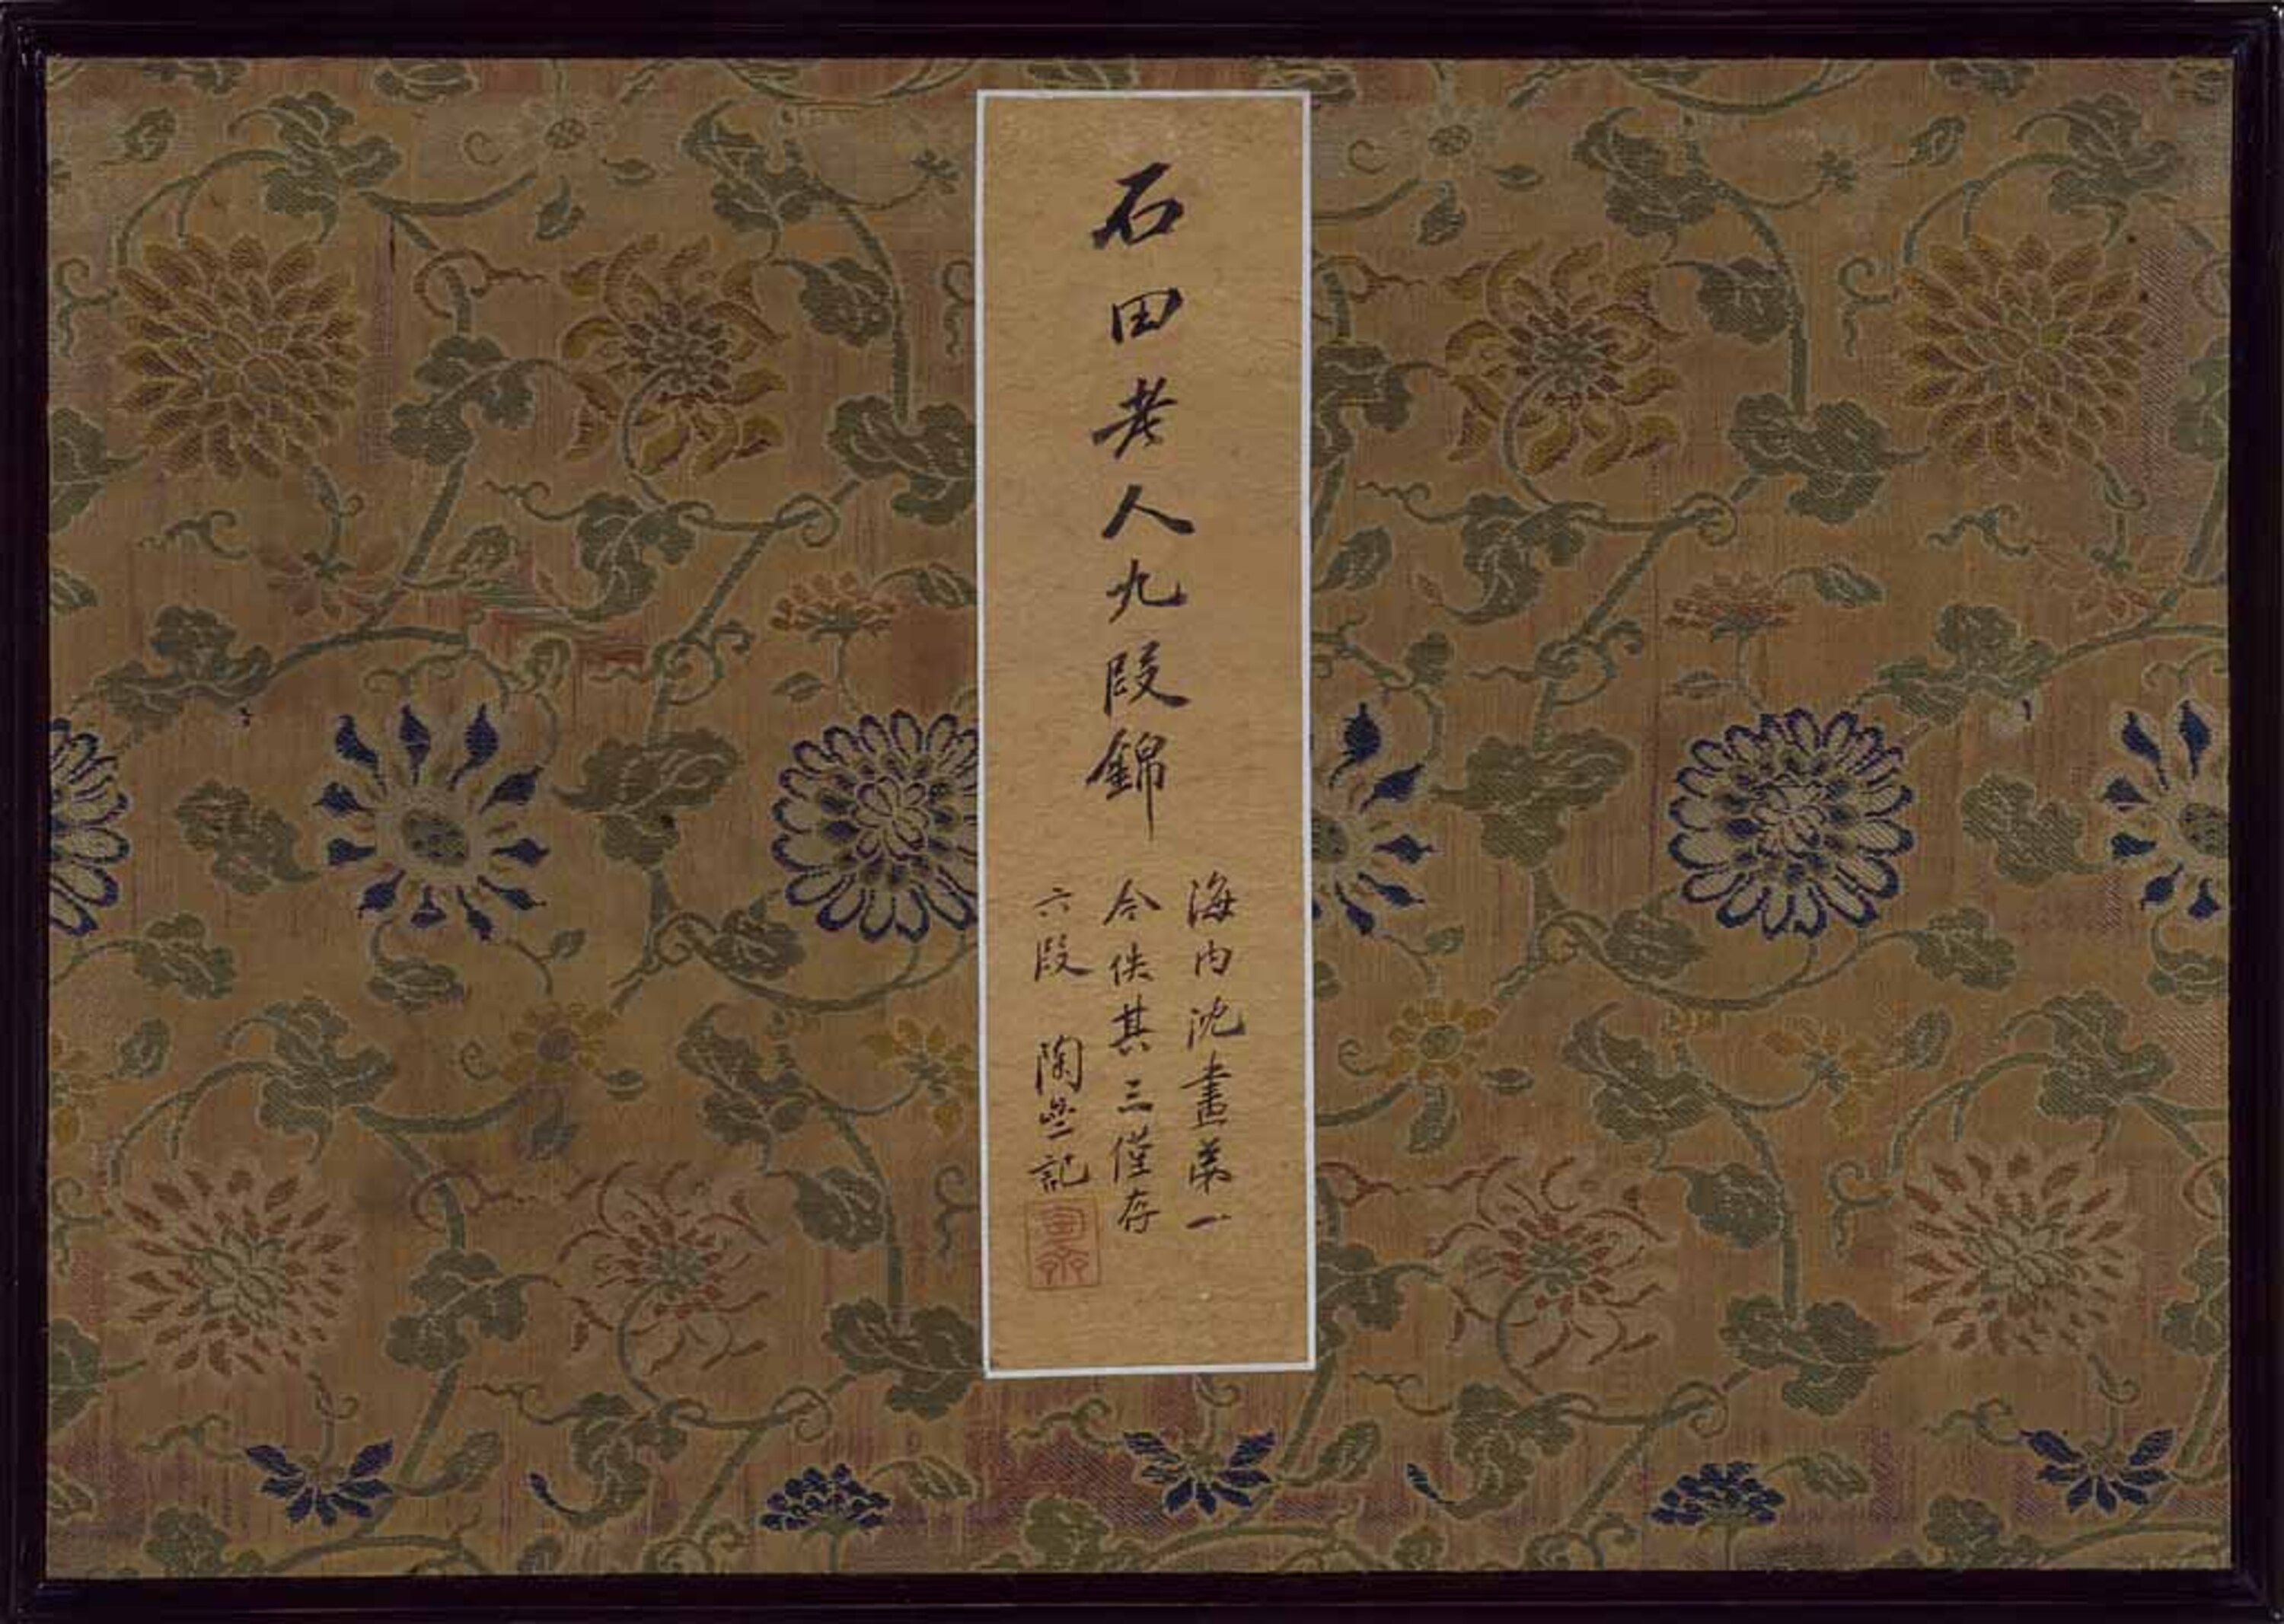 石田老人九段錦
海内沈畫第一
今佚其三僅存
六段 陶㘴記